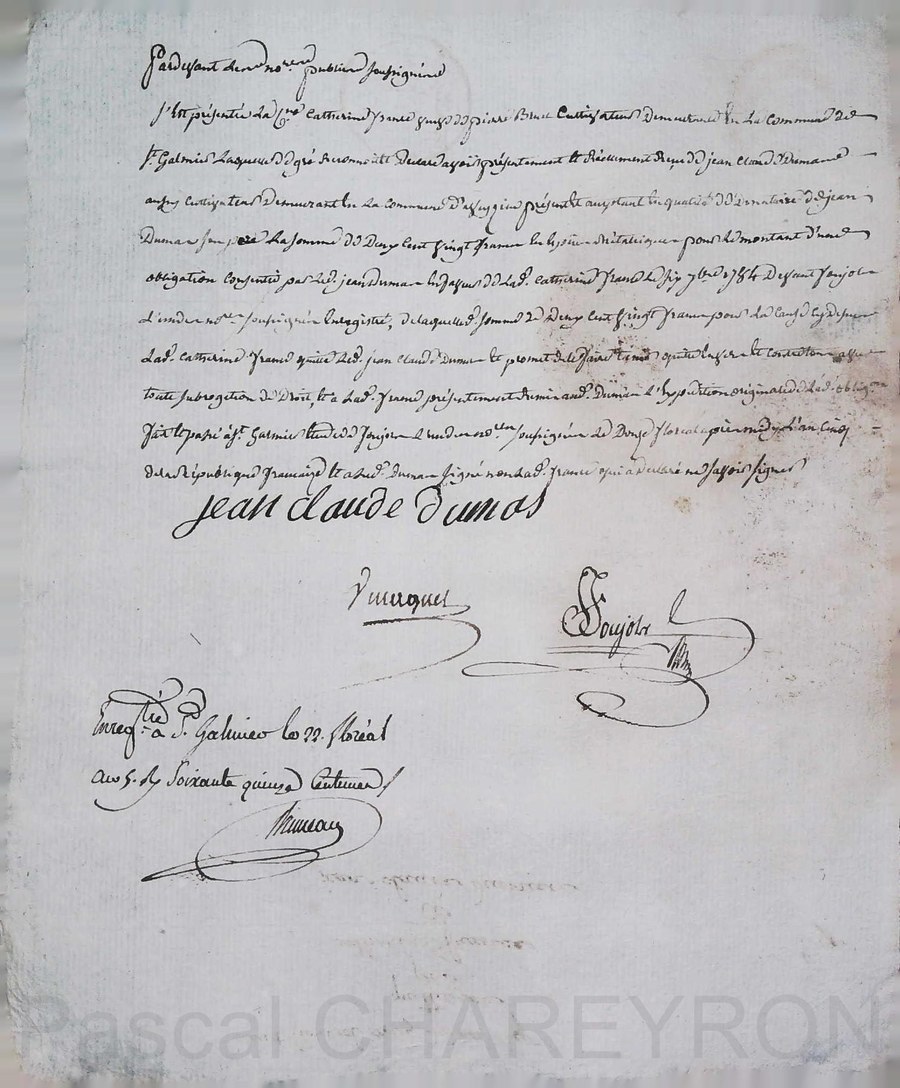 Pardevant les no.res publics soussignés
S'Est présentée La C.ne Catherine france veuve de pierre Brunel Cultivateur Demeurante En La Commune De
S.t Galmier Laquelle de gré Reconnoit et Declare avoir présentement et Réellement Reçu de jean Claude Dumas
aussy Cultivateur Demeurant En La Commune D'aveyzieu présent et acceptant En qualité de Donataire de jean
Dumas son pere La somme de Deux Cent vingt francs En Espèce métalique pour Le montant d'une
obligation Consentie par Led. jean Dumas En faveur de Lad. Catherine france Le six 7bre 1784 Devant Soujol
L'un des no.res soussignés Enregistré, de laquelle somme De Deux Cent vingt francs pour La Cause Cy dessus
Lad. Catherine france quitte Led. jean Claude Dumas et promet de le faire tenir quitte Envers et Contre tous avec
toute subrogation de Droit, et a Lad. france présentement remis aud. Dumas L'Expédition originale de Lad. obligation
fait et passé a S.t Galmier Etude de Soujol L'un des no.res soussignés Le Douze floréal après midy L'an Cinq
de la République française et a Led. Dumas signé non Lad. france qui a Déclaré ne savoir signer
jean claude dumas
Soujol
Enreg.tré a S.t Galmier le 22. floréal
an 5. R Soixante quinze Centimes
Pascal CHAREYRON